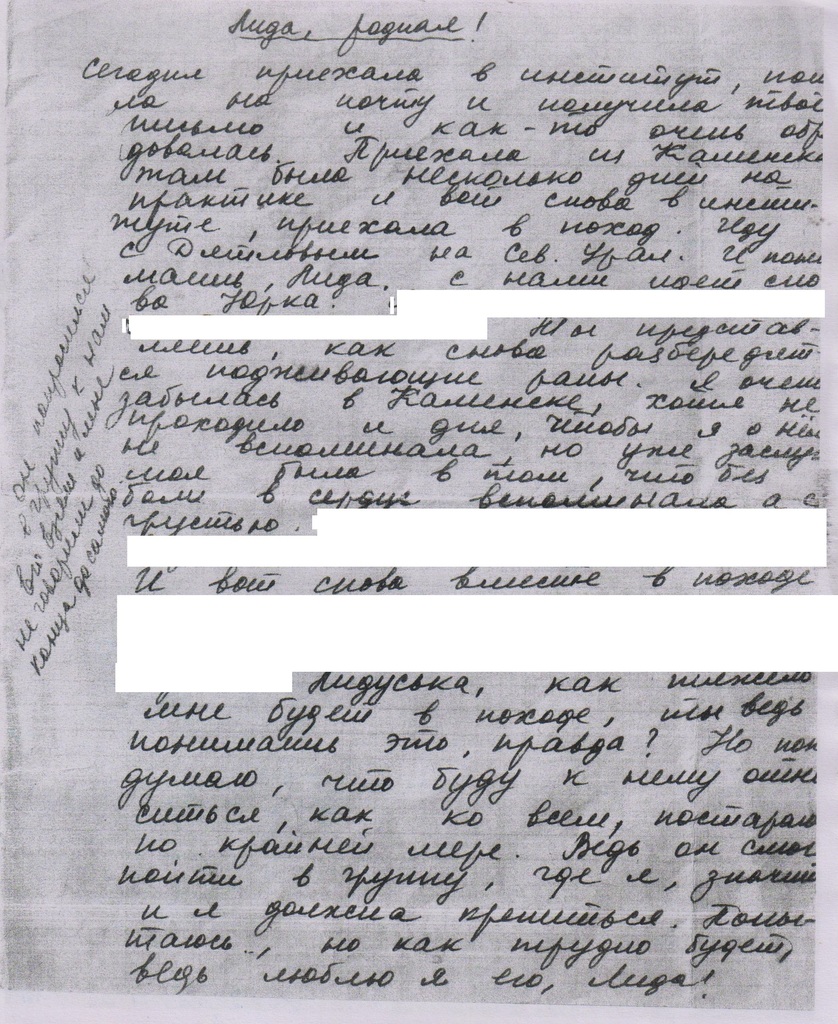 Лида, родная!
Сегодня приехала в институт, пош
ла на почту и получила твое
письмо и как-то очень обр
довалась. Приехала из Каменска
там была несколько дней на
практике и вот снова в инсти-
туте, приехала в поход. Иду
с Дятловым на Сев. Урал. И пони
маешь, Лида, с нами идет сно
ва Юрка.
Ты представ-
ляешь, как снова разбередят
ся подживающие раны. Я очень
забылась в Каменске, хотя не
проходило и дня, чтобы я о нём
не вспоминала, но уже заслу
моя была в том, что без
боли в сердце вспоминала а с
грустью.
И вот снова вместе в походе
Лидуська, как тяжело
мне будет в походе, ты ведь
понимаешь это, правда? Но
думаю, что буду к нему отно
ситься, как ко всем, постараюсь
по крайней мере. Ведь он смог
пойти в группу, где я, значит
и я должна крепиться. Попы-
таюсь, но как трудно будет,
ведь люблю я его, Лида!
Он попросился
в группу к нам
его взяли а мне
не говорили до
конца до самого